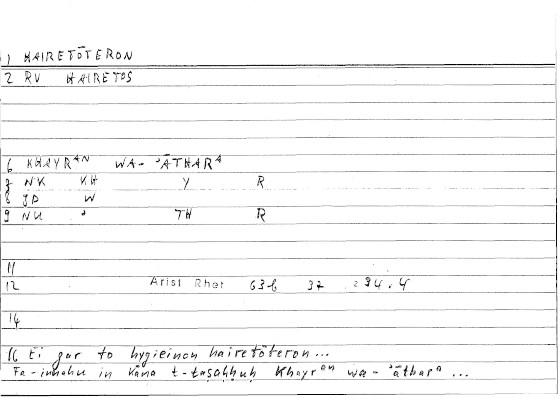 1 HAIRETŌTERON
2 RV HAIRETOS
6 KHAYRᴬᴺ WA- ʾĀTHARᴬ
7 NK KH Y R
8 JP W
9 NK ʾ TH R
11
12 Arist Rhet 63b 37 294.4
14
16 Ei gar to hygieinon hairetōteron...
Fa-innahu in kāna t-taṣaḥḥuḥ khayrᵃⁿ wa-ʾātharᵃ ...